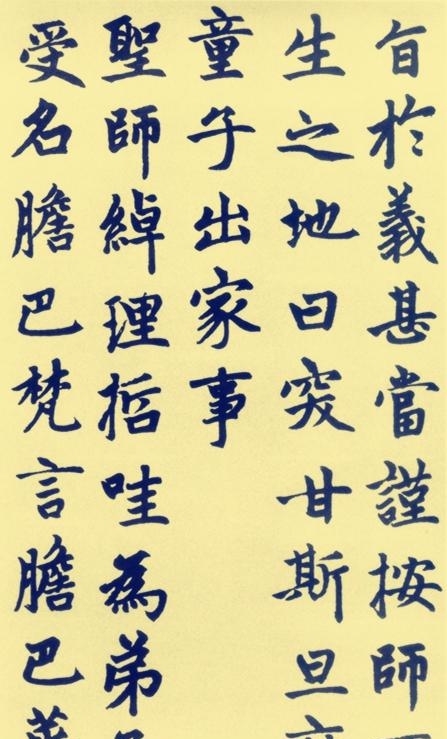 旨於義甚當謹按師
生之地曰突甘斯旦
童子出家事
聖師綽理哲哇為弟
受名膽巴梵言膽巴華